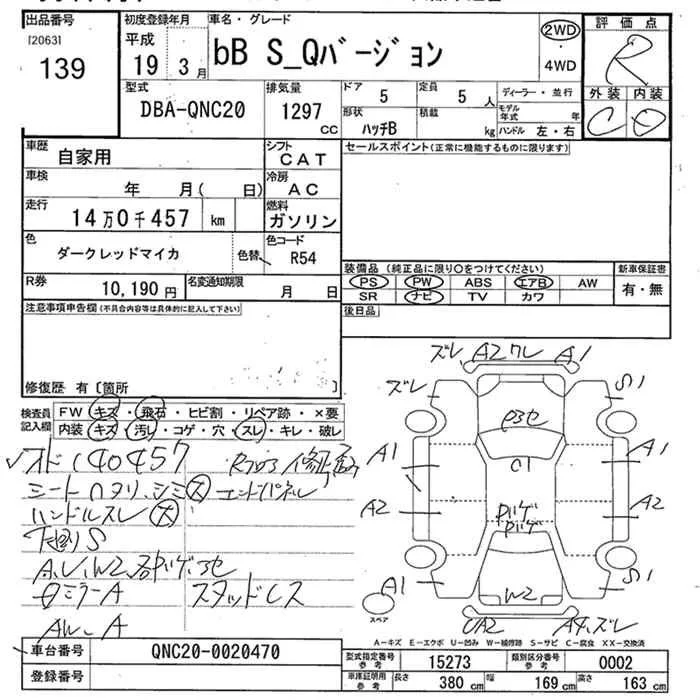 出品番号
[2063]
139
初度登録年月
平成
19年 3月
車名・グレード
bB S_Qバージョン
2WD
・
4WD
評価点
R
外装 内装
C D
型式
DBA-QNC20
排気量
1297 CC
ドア 5
定員 5 人
形状 ハッチB
積載 kg
ディーラー・並行
モデル年式 年
ハンドル 左・右
車歴
自家用
シフト
CAT
セールスポイント(正常に機能するものに限ります)
車検
年 月( 日)
冷房
AC
走行
14万0千457 km
燃料
ガソリン
色
ダークレッドマイカ
色替
色コード
R54
装備品 (純正品に限り○をつけてください)
新車保証書
PS PW ABS エアB AW
SR ナビ TV カワ
有・無
R券
10,190円
名変通知期限
月 日
後日品
注意事項申告欄(不具合内容等は具体的に記入して下さい)
修復歴 有 [箇所 ]
検査員記入欄
FW キズ・飛石・ヒビ割・リペア跡・×要
内装 キズ・汚レ・コゲ・穴・スレ・キレ・破レ
オド140457
シートハタリ、シミ大
エンドパネル
ハンドルスレ大
下廻りS
ミラーA
スタッドレス
AW-A
ズレ A2ワレ A1
ズレ S1
A1 A1
A2 A2
A1 S1
W2
UA2 A4、ズレ
スペア
A-キズ E-エクボ U-凹み W-補修跡 S-サビ C-腐食 XX-交換済
車台番号
QNC20-0020470
登録番号
型式指定番号 参考
15273
類別区分番号 参考
0002
車庫証明用 参考
長さ 380 cm 幅 169 cm 高さ 163 cm